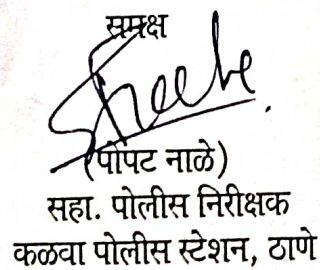 समक्ष
(पोपट नाळे)
सहा. पोलीस निरीक्षक
कळवा पोलीस स्टेशन, ठाणे